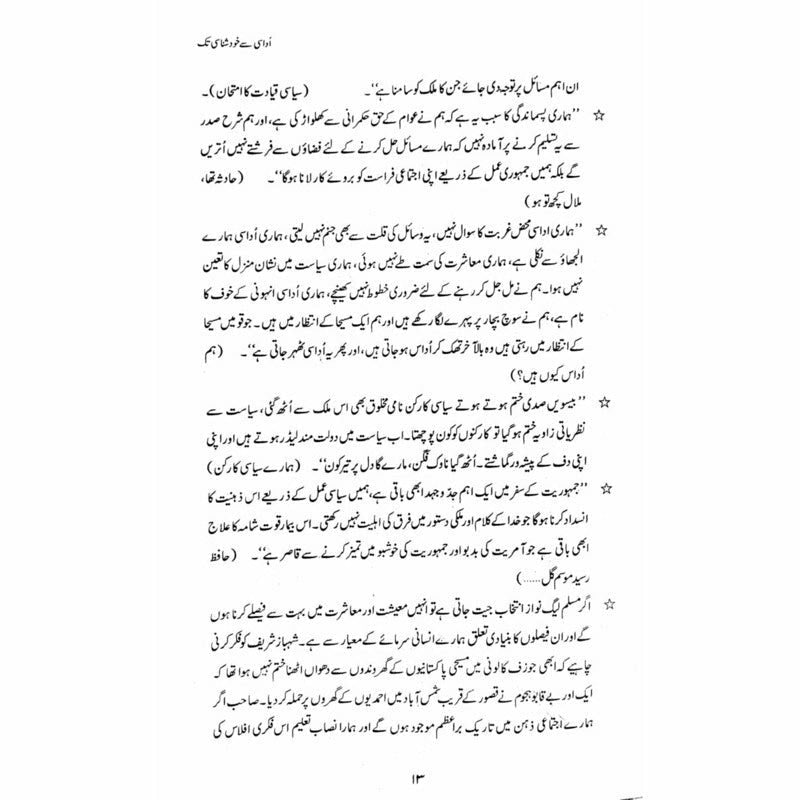 اُداسی سے خود شناسی تک
ان اہم مسائل پر توجہ دی جائے جن کا ملک کو سامنا ہے‘‘۔ (سیاسی قیادت کا امتحان)۔
☆ ’’ہماری پسماندگی کا سبب یہ ہے کہ ہم نے عوام کے حق حکمرانی سے کھلواڑ کی ہے، اور ہم شرح صدر
سے یہ تسلیم کرنے پر آمادہ نہیں کہ ہمارے مسائل حل کرنے کے لئے فضاؤں سے فرشتے نہیں اُتریں
گے بلکہ ہمیں جمہوری عمل کے ذریعے اپنی اجتماعی فراست کو بروئے کار لانا ہوگا‘‘۔ (حادثہ تھا،
ملال کچھ تو ہو)
☆ ’’ہماری اداسی محض غربت کا سوال نہیں، یہ وسائل کی قلت سے بھی جنم نہیں لیتی، ہماری اُداسی ہمارے
الجھاؤ سے نکلی ہے، ہماری معاشرت کی سمت طے نہیں ہوئی، ہماری سیاست میں نشان منزل کا تعین
نہیں ہوا۔ ہم نے مل جل کر رہنے کے لئے ضروری خطوط نہیں کھینچے، ہماری اُداسی انہونی کے خوف کا
نام ہے، ہم نے سوچ بچار پر پہرے لگا رکھے ہیں اور ہم ایک مسیحا کے انتظار میں ہیں۔ جو قومیں مسیحا
کے انتظار میں رہتی ہیں وہ بالآخر تھک کر اُداس ہو جاتی ہیں، اور پھر یہ اُداسی ٹھہر جاتی ہے‘‘۔ (ہم
اُداس کیوں ہیں؟)
☆ ’’بیسویں صدی ختم ہوتے ہوتے سیاسی کارکن نامی مخلوق بھی اس ملک سے اُٹھ گئی، سیاست سے
نظریاتی زاویہ ختم ہو گیا تو کارکنوں کو کون پوچھتا۔ اب سیاست میں دولت مند لیڈر ہوتے ہیں اور اپنی
اپنی دف کے پیشہ ور گماشتے۔ اُٹھ گیا ناوک فگن، مارے گا دل پر تیر کون‘‘۔ (ہمارے سیاسی کارکن)
☆ ’’جمہوریت کے سفر میں ایک اہم جدّوجہد ابھی باقی ہے، ہمیں سیاسی عمل کے ذریعے اس ذہنیت کا
انسداد کرنا ہوگا جو خدا کے کلام اور ملکی دستور میں فرق کی اہلیت نہیں رکھتی۔ اس بیمار قوت شامہ کا علاج
ابھی باقی ہے جو آمریت کی بدبو اور جمہوریت کی خوشبو میں تمیز کرنے سے قاصر ہے‘‘۔ (حافظ
رسید موسم گل......)
☆ اگر مسلم لیگ نواز انتخاب جیت جاتی ہے تو انہیں معیشت اور معاشرت میں بہت سے فیصلے کرنا ہوں
گے اور ان فیصلوں کا بنیادی تعلق ہمارے انسانی سرمائے کے معیار سے ہے۔ شہباز شریف کو فکر کرنی
چاہیے کہ ابھی جوزف کالونی میں مسیحی پاکستانیوں کے گھروندوں سے دھواں اٹھنا ختم نہیں ہوا تھا کہ
ایک اور بے قابو ہجوم نے قصور کے قریب شمس آباد میں احمدیوں کے گھروں پر حملہ کر دیا۔ صاحب اگر
ہمارے اجتماعی ذہن میں تاریک براعظم موجود ہوں گے اور ہمارا نصاب تعلیم اس فکری افلاس کی
۱۳